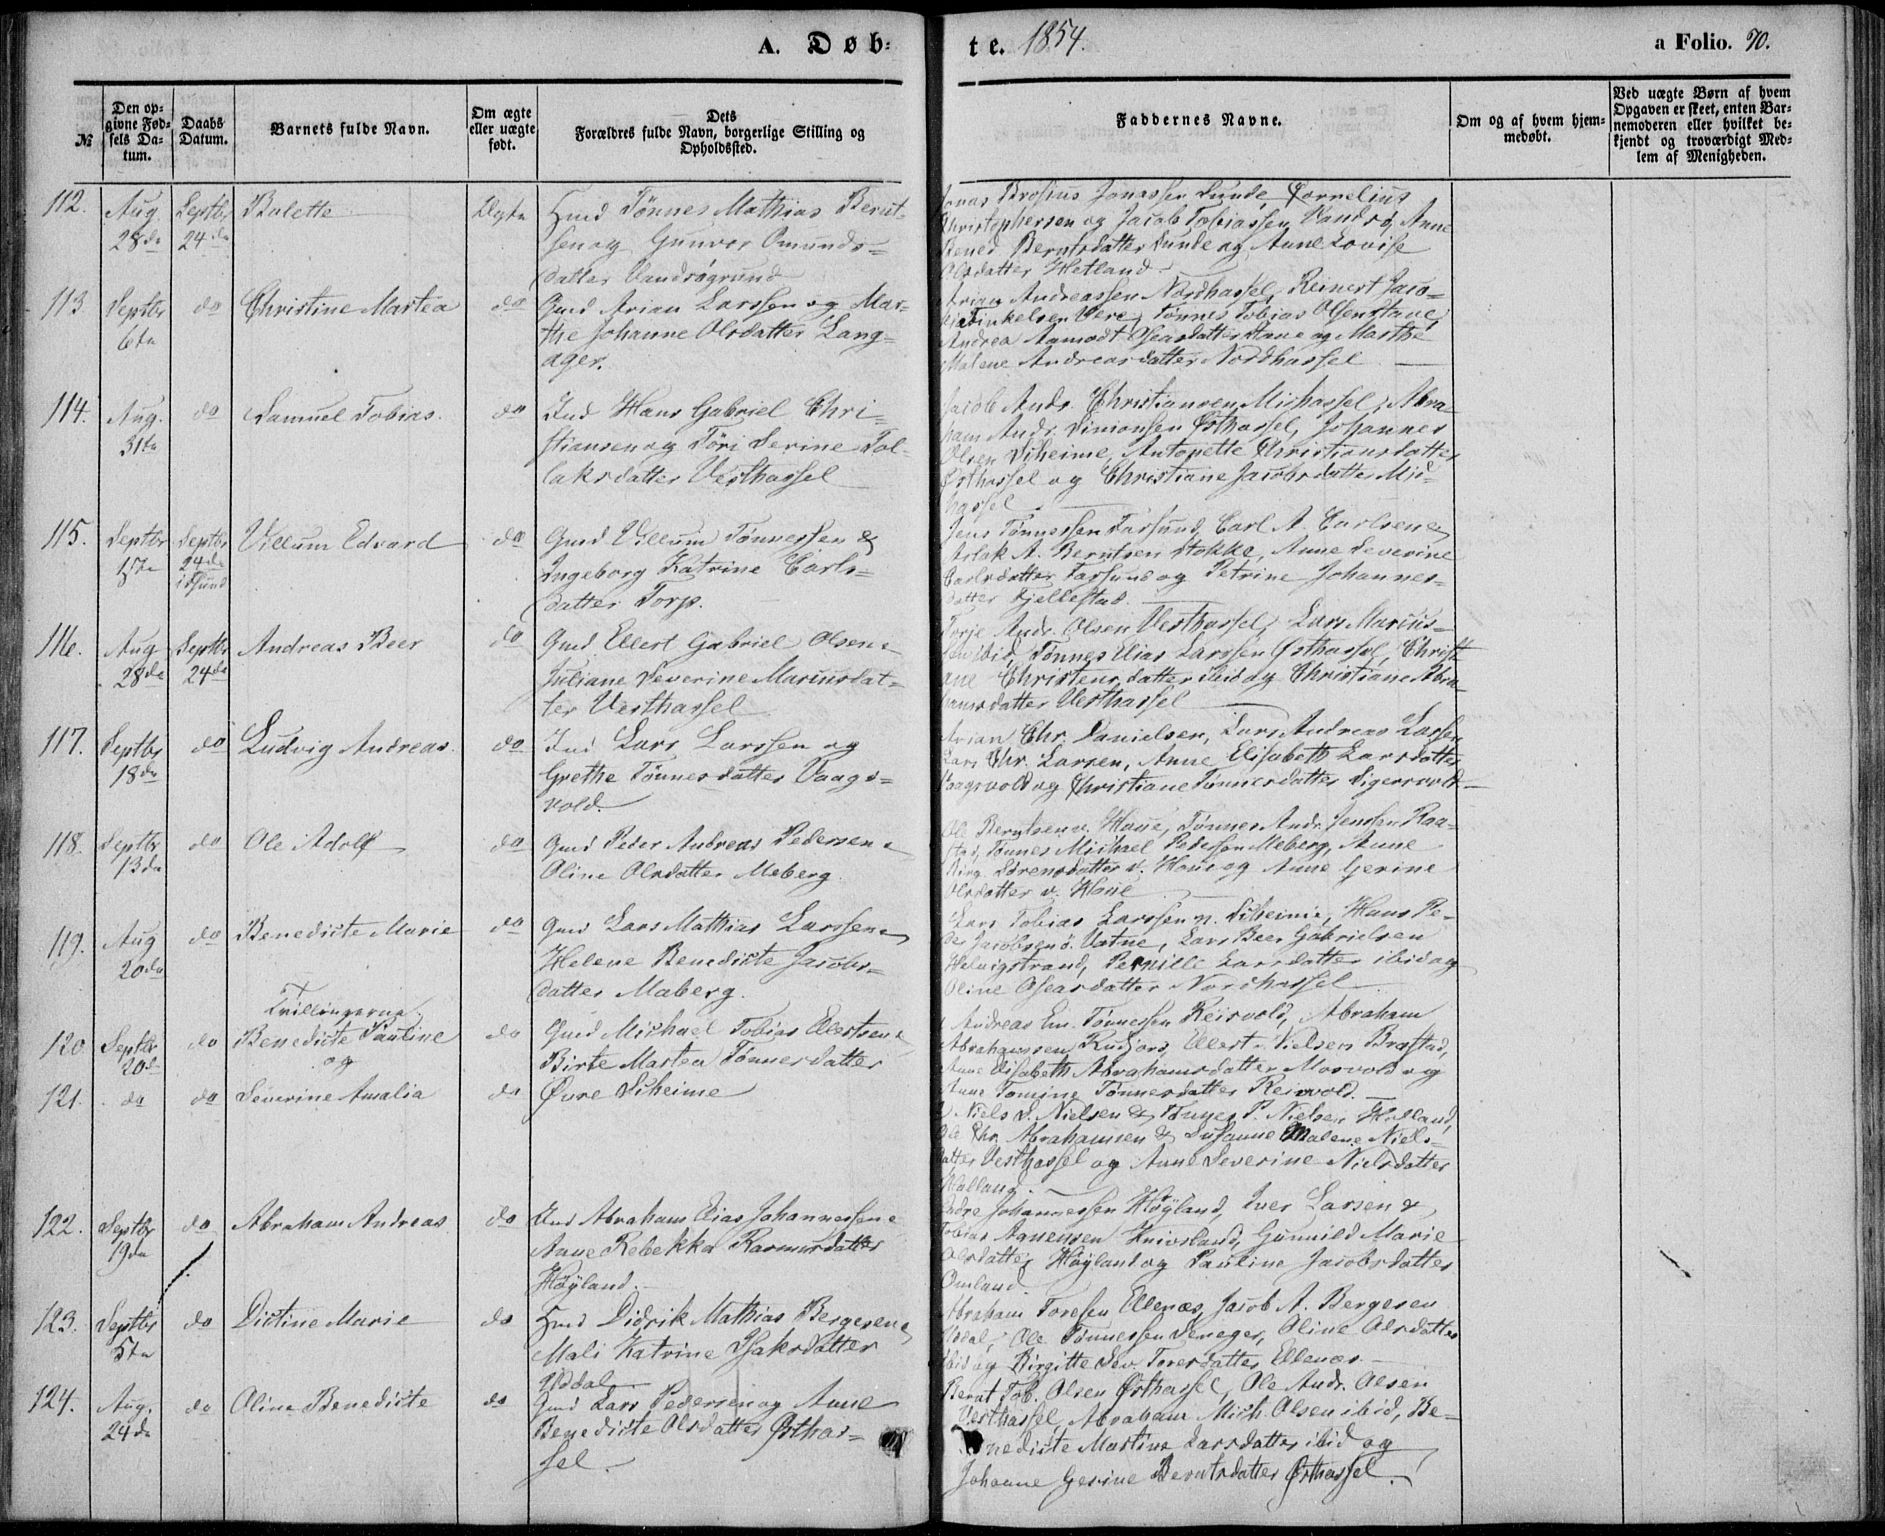 A. Døb-
te. 1854.
a Folio. 70.
№
Den op-
givne Fød-
sels Da-
tum.
Daabs
Datum.
Barnets fulde Navn.
Om ægte
eller uægte
født.
Dets
Forældres fulde Navn, borgerlige Stilling og
Opholdssted.
Faddernes Navne.
Om og af hvem hjem-
medøbt.
Ved uægte Børn af hvem
Opgaven er skeet, enten Bar-
nemoderen eller hvilket be-
kjendt og troværdigt Med-
lem af Menigheden.
112.
Aug.
28de
Septbr
24de
Bolette
Ægte
Hmd Tønnes Mathias Bernt-
sen og Gunvor Omunds-
datter Vandsøgrund
Jonas Brosius Jonassen Lunde, Cornelius
Christophersen og Jacob Tobiassen Vandsø, Anne
Bened. Berntsdatter Lunde og Anne Lovise
Olsdatter Hetland.
113.
Septbr
6te
do
Christine Martea
do
Gmd Arian Larssen og Mar-
the Johanne Olsdatter Lang-
ager.
Arian Andreassen Nordhassel, Reinert Jaco-
Vere, Tønnes Tobias Olsen Stave,
Andrea Aamodt Oseasdatter Stave og Marthe
Malene Andreasdatter Nordhassel
114.
Aug.
31te
do
Samuel Tobias
do
Ind Hans Gabriel Chri-
stiansen og Töri Serine Tol-
laksdatter Vesthassel
Jacob Andr. Christiansen Midhassel, Abra-
ham Andr. Simonsen Østhassel, Johannes
Olsen Siheime, Antonette Christiansdatter
Østhassel og Christiane Jacobsdatter Mid-
hassel
115.
Septbr
15te
Septbr
24de
Villum Edvard
do
Gmd Villum Tønnessen &
Ingeborg Katrine Carls-
datter Torp.
Jens Tønnessen Farsund, Carl A. Carlsen &
Aslak A. Berntsen Stokke, Anne Severine
Carlsdatter Farsund og Petrine Johannes-
datter Fjellestad.
116.
Aug
28de
Septbr
24de
Andreas Beer
do
Gmd Ellert Gabriel Olsen &
Juliane Severine Mariusdat-
ter Vesthassel
Torje Andr. Olsen Vesthassel, Lars Marius-
sen ibid, Tønnes Elias Larssen Østhassel, Christi-
ane Christensdatter ibid og Christiane Abra-
hamsdatter Vesthassel
117.
Septbr
18de
do
Ludvig Andreas
do
Ind Lars Larssen og
Grethe Tønnesdatter Vaags-
vold.
Arian Chr. Danielsen, Lars Andreas Larssen
Lars Chr. Larsen, Anne Elisabeth Larsdatter
Vaagsvold og Christiane Tønnesdatter Sigersvold
118.
Septbr
13de
do
Ole Adolf
do
Gmd Peder Andreas Pedersen &
Oline Olsdatter Meberg
Ole Berntsen v. Haue, Tønnes Andr. Jenssen Raa-
stad, Tønnes Michael Pedersen Meberg, Anne
Birg. Sørensdatter v. Haue og Anne Gerine
Olsdatter v. Haue
119.
Aug
20de
do
Benedicte Marie
do
Gmd Lars Mathias Larssen &
Helene Benedicte Jacobs-
datter Maberg.
Lars Tobias Larssen n. Siheime, Hans Pe-
der Jacobsen ö. Vatne, Lars Beer Gabrielsen
Helvigstrand, Pernille Larsdatter ibid og
Oline Oseasdatter Nordhassel
Tvillingerne
120.
Septbr
20de
do
Benedicte Pauline
og
do
Gmd Michael Tobias Ellertsen &
Birte Martea Tønnesdatter
Andreas Em. Tønnessen Reisvold, Abraham
Abrahamsen Rudjord, Ellert Nielsen Brastad,
Anne Elisabeth Abrahamsdatter Mosvold og
Anne Tomine Tønnesdatter Reisvold.
121.
do
do
Severine Amalia
do
Øvre Siheime
Niels S. Nielsen & Tønnes P. Nielsen Hylland,
Ole Chr. Abrahamsen & Susanne Malene Niels-
datter Vesthassel og Anne Severine Nielsdatter
122.
Septbr
19de
do
Abraham Andreas
do
Ind Abraham Elias Johannessen &
Anne Rebekka Rasmusdatter
Høyland.
Johannessen Høyland, Iver Larsen &
Tobias Aanensen Knivsland, Gunnild Marie
Olsdatter Høyland og Pauline Jacobsdatter
Omland
123.
Septbr
5te
do
Dictine Marie
do
Hmd Didrik Mathias Bergesen &
Mali Katrine Isaksdatter
Uddal
Abraham Toresen Ellenes, Jacob A. Bergesen
Uddal, Ole Tønnessen Seneger, Oline Olsdatter
ibid og Birgitte Sev. Toresdatter Ellenes.
124.
Aug.
24de
do
Oline Benedicte
do
Gmd Lars Pedersen og Anne
Benedicte Olsdatter Østhas-
sel.
Bernt Tob. Olsen Østhassel, Ole Andr. Olsen
Vesthassel, Abraham Mich. Olsen ibid, Be-
nedicte Martine Larsdatter ibid og
Johanne Gerine Berntsdatter Østhassel.